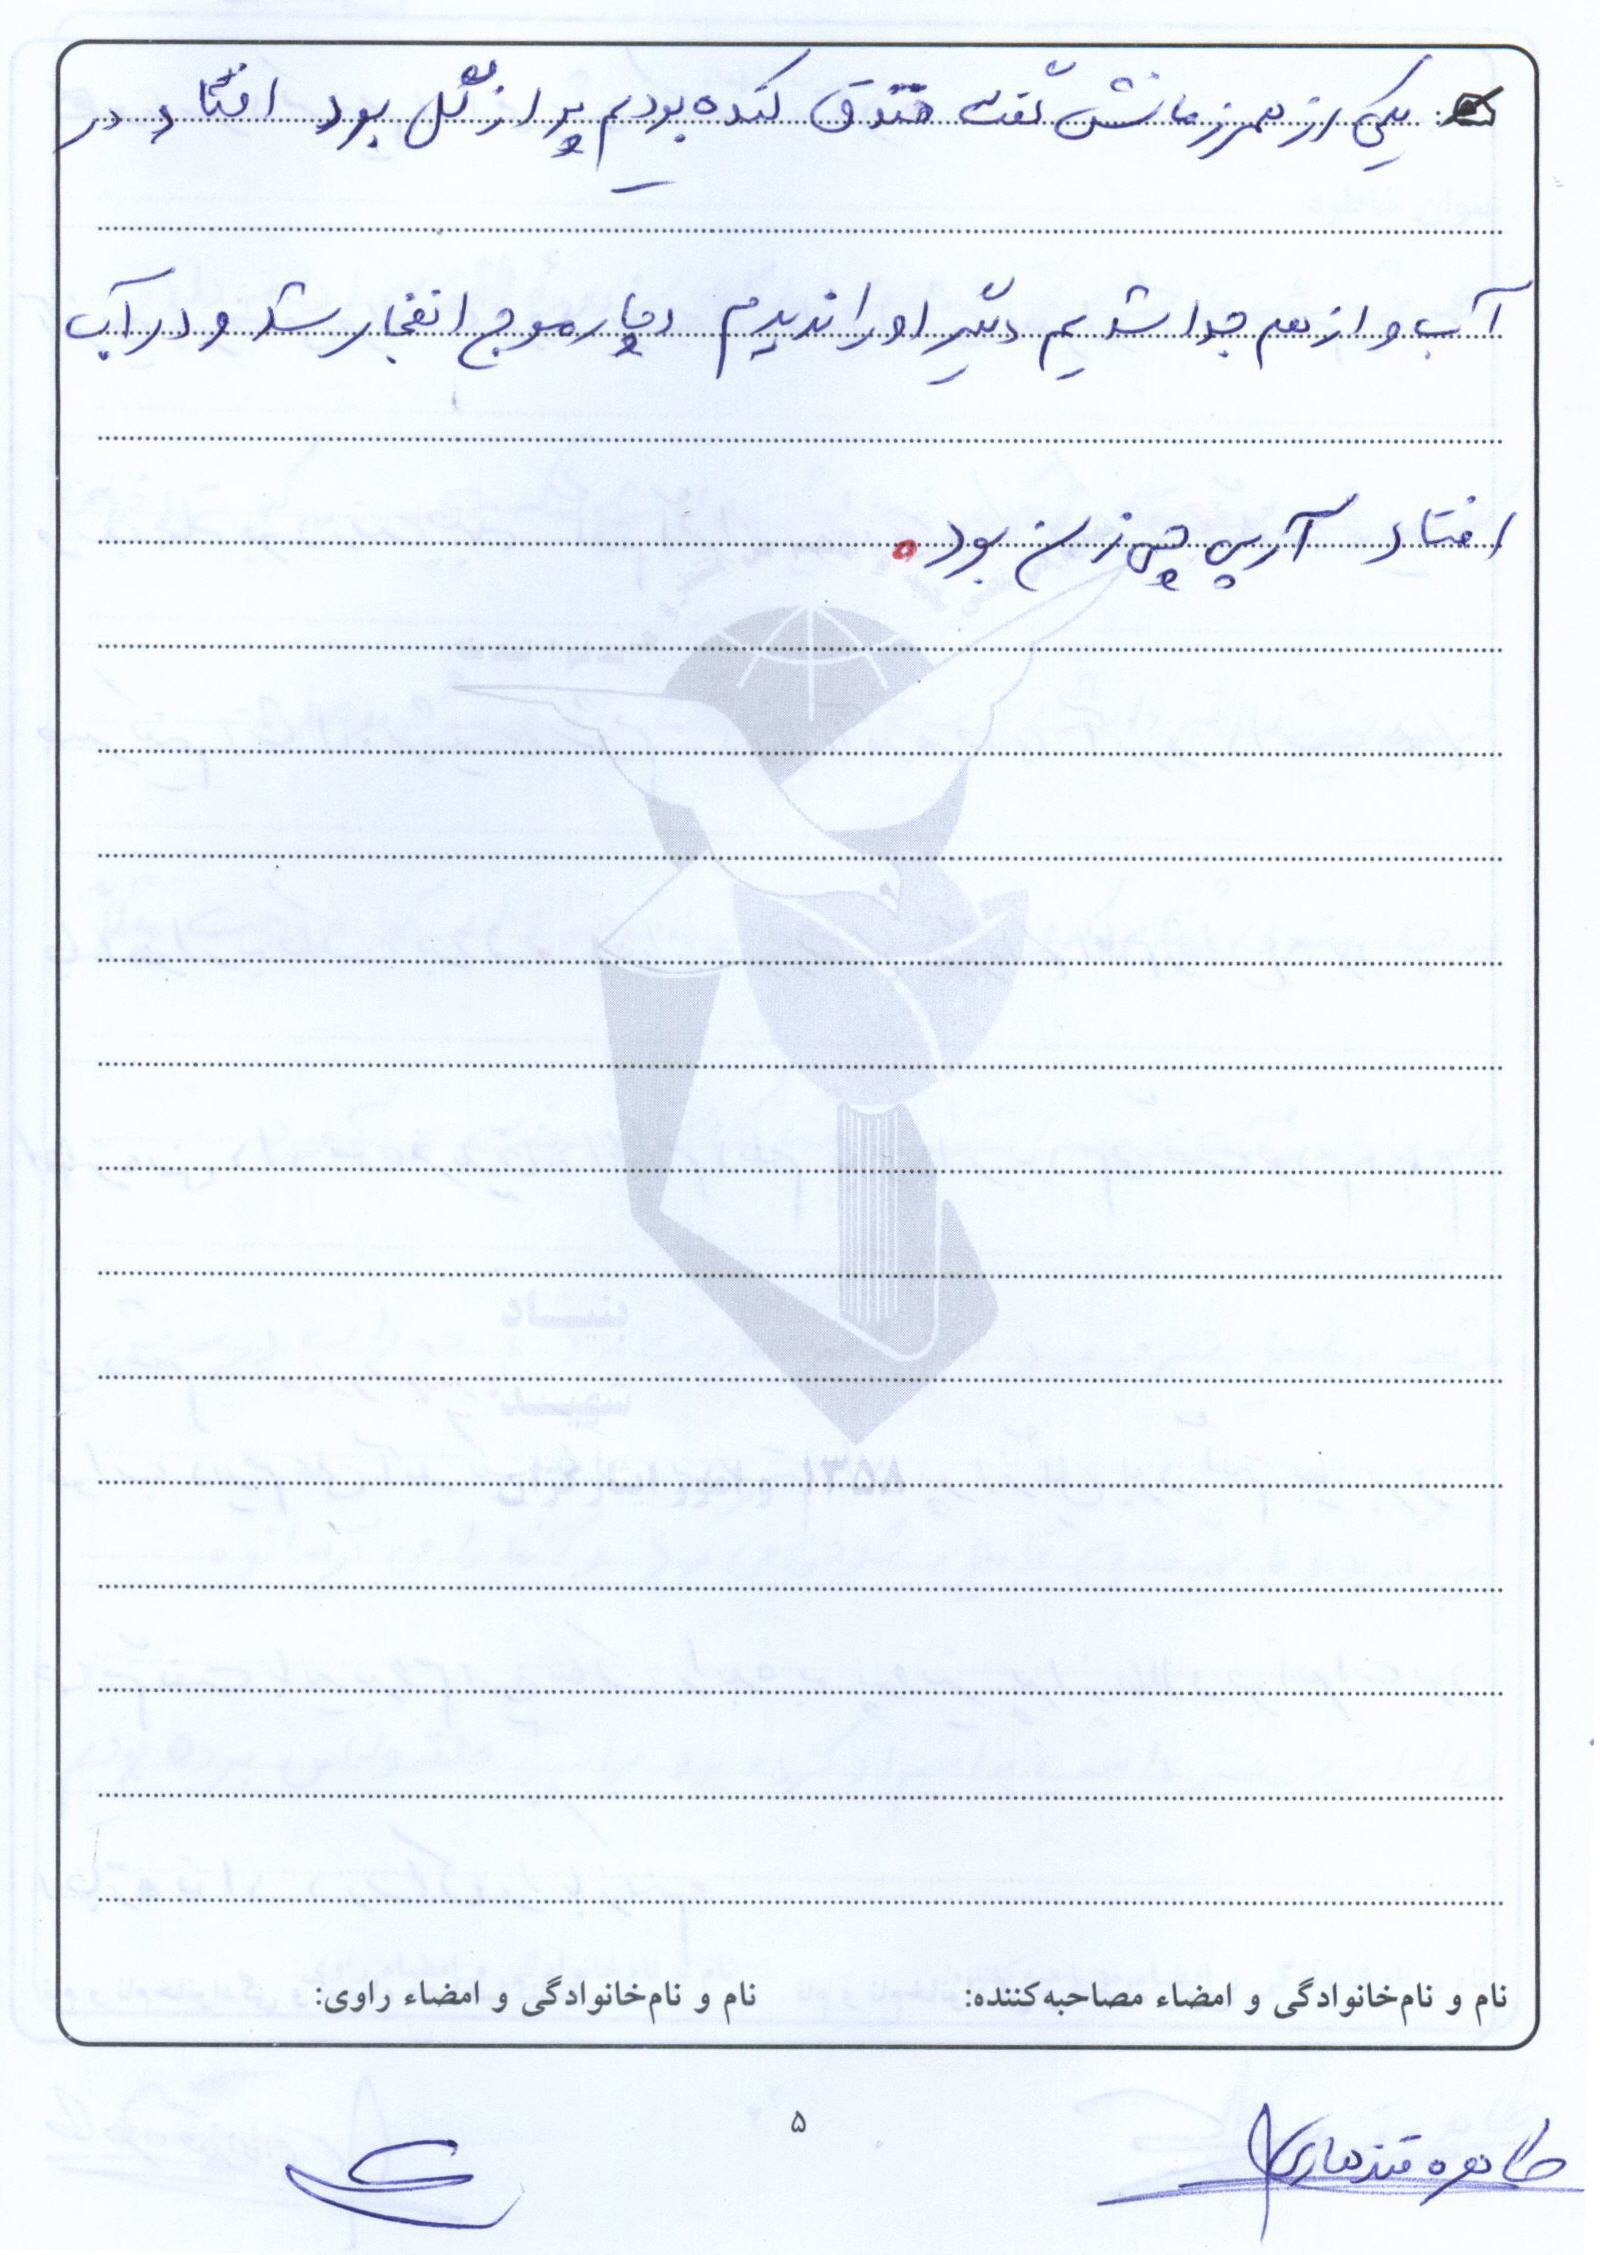 یکی از همرزمانش گفت خندق کنده بودیم پر از گل بود افتاد در
آب و از هم جدا شدیم دیگر او را ندیدم دچار موج انفجار شد و در آب
افتاد آرپی چی زن بود.
نام و نام‌خانوادگی و امضاء مصاحبه‌کننده:
نام و نام‌خانوادگی و امضاء راوی:
۵
طاهره قندهاری